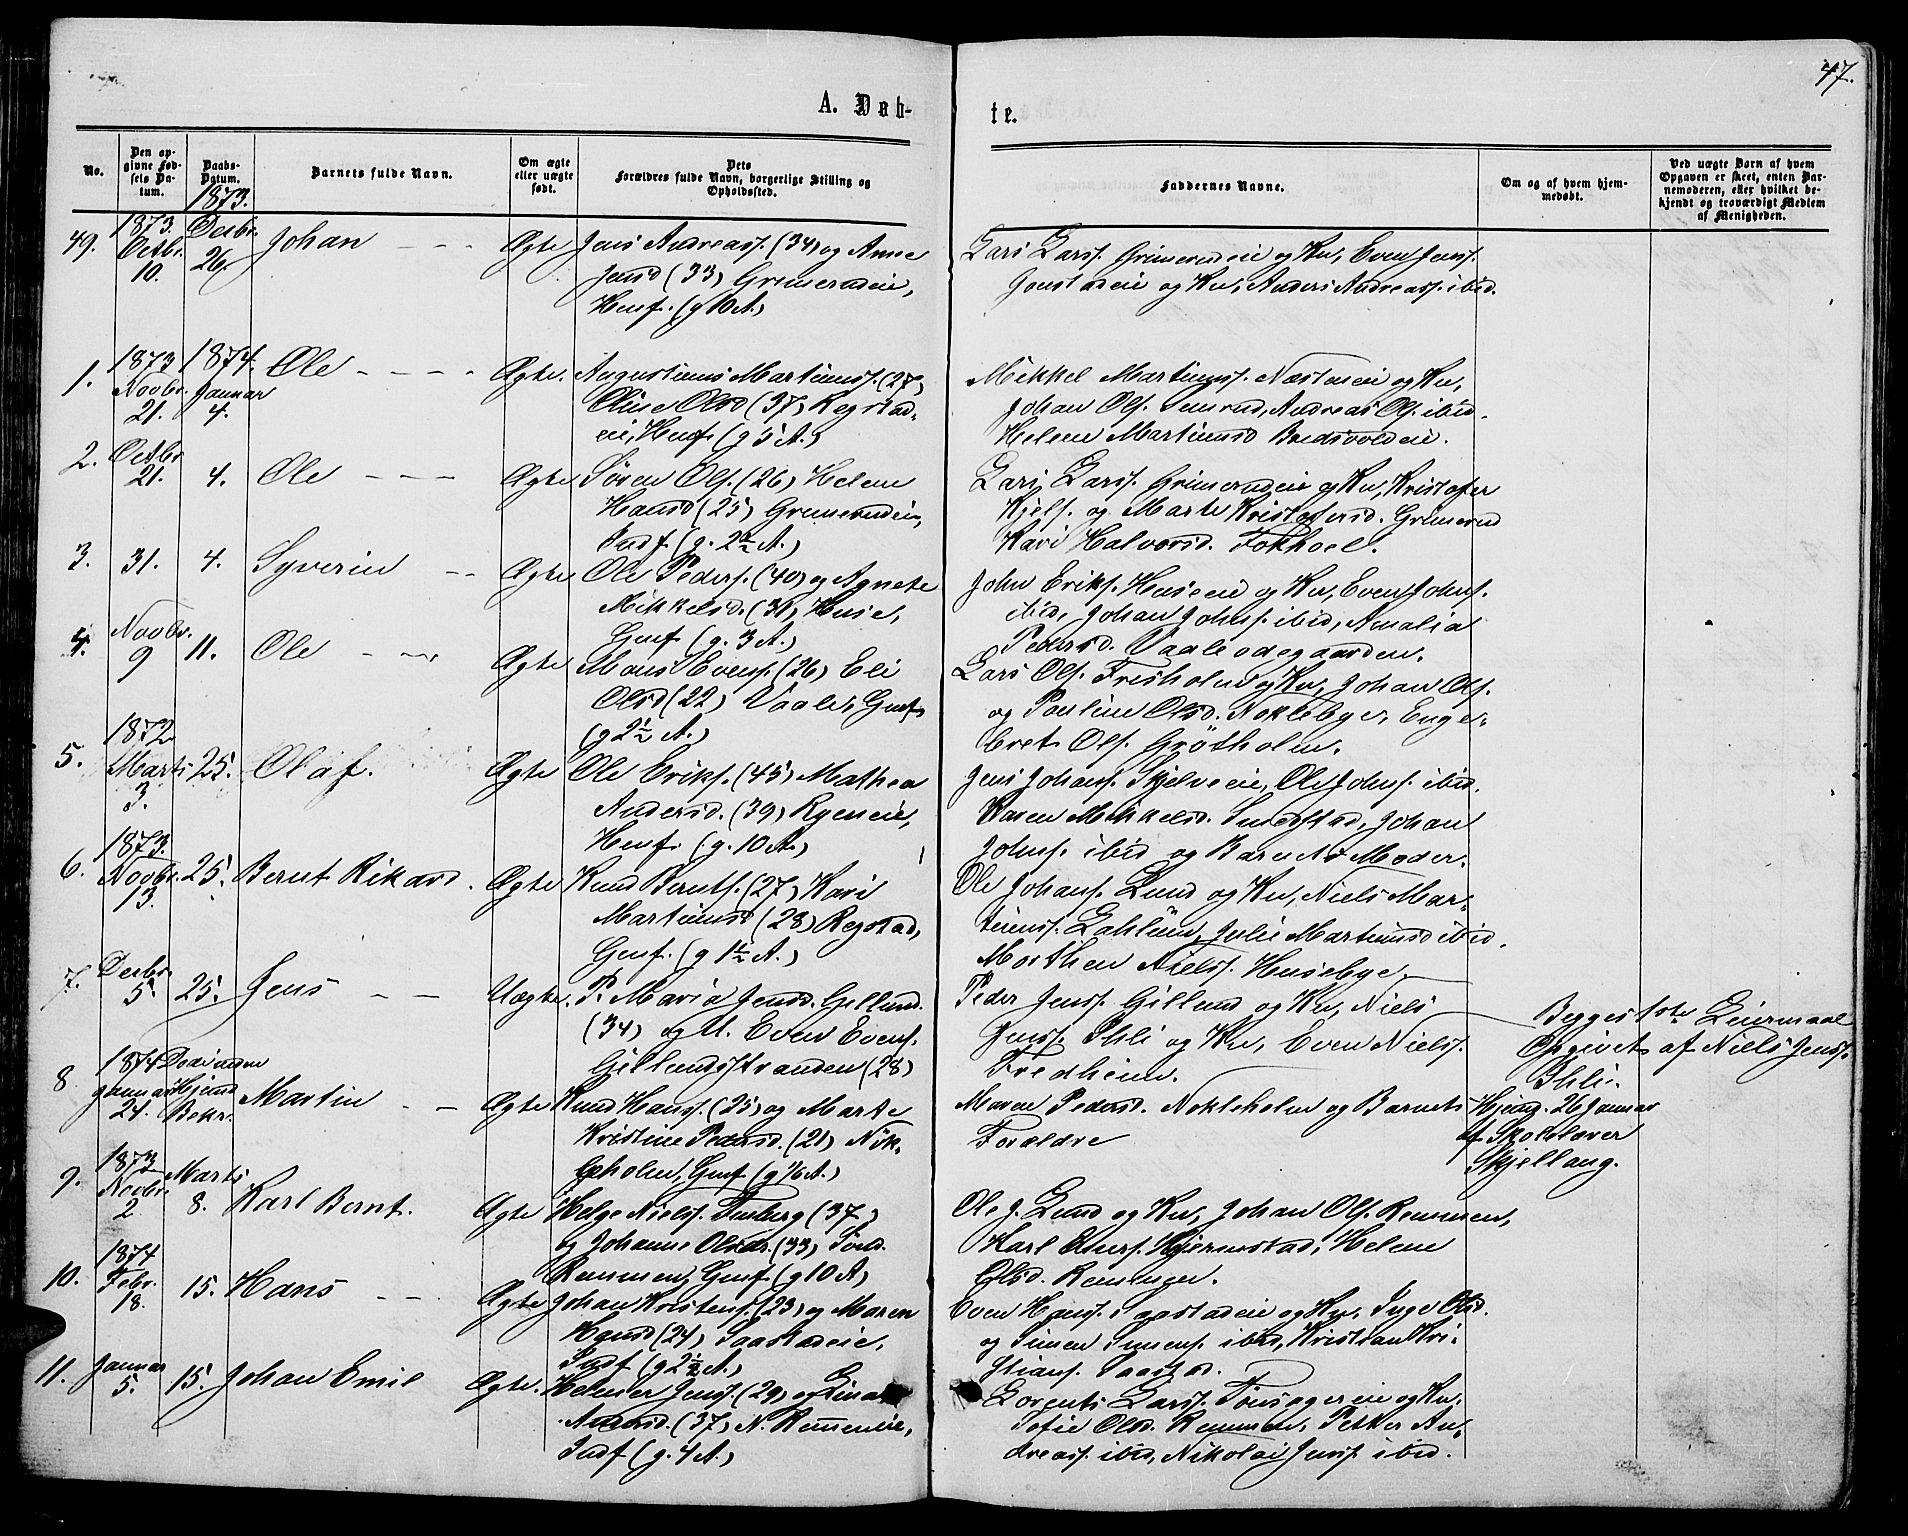 47.
A. Døb-
te.
No.
Den op-
givne Fød-
sels Da-
tum.
Daabs-
Datum.
1873.
Barnets fulde Navn.
Om ægte
eller uægte
født.
Dets
Forældres fulde Navn, borgerlige Stilling og
Opholdssted.
Faddernes Navne.
Om og af hvem hjem-
medøbt.
Ved uægte Barn af hvem
Opgaven er skeet, enten Bar-
nemoderen, eller hvilket be-
kjendt og troværdigt Medlem
af Menigheden.
49.
1873.
Octbr.
10.
Decbr.
26.
Johan
Ægte
Jens Andreass. (34) og Anne
Jensd (33) Grimerudeie,
Henf. (g 10 A.)
Lars Larss. Grimerudeie og Kv, Even Jenss.
Gonstadeie og Kv, Anders Andreass. ibid.
1.
1873
Novbr.
21.
1874.
Januar
4.
Ole
Ægte.
Augustinus Martinuss. (27)
Oline Olsd (37) Regstad-
eie, Henf. (g 5 A.)
Mikkel Martinuss. Næstaeie og Kv,
Johan Ols. Semrud, Andreas Ols. ibid.
Helene Martinusd Bredsvoldeie.
2.
Octbr
21.
4.
Ole
Ægte
Søren Ols. (26) Helene
Hansd (25) Grimerudeie,
Indf (g. 2½ A.)
Lars Larss. Grimerudeie og Kv, Kristofer
Kjels. og Marte Kristofersd. Grimerud
Kari Halvorsd. Fokhoel.
3.
31.
4.
Syverin
Ægte
Ole Peders. (40) og Agnete
Mikkelsd. (31) Huse,
Genf (g. 3 A.)
John Eriks. Huseeie og Kv, Even Johns.
ibid, Johan Johns. ibid, Amalia
Pedersd. Vaaleødegaarden.
4.
Novbr.
9
11.
Ole
Ægte
Mons Evens. (26) Eli
Olsd (22) Vaaler, Genf
(g 2½ A.)
Lars Ols. Fresholm og Kv, Johan Ols.
og Pauline Olsd. Noklebye, Enge-
bret Ols. Grötholm.
5.
1872
Marts
3.
25.
Olaf.
Ægte
Ole Eriks. (45) Mathea
Andersd. (39) Ryeneie,
Henf. (g. 10 A.)
Jens Johans. Skjelveeie, Ole Johns. ibid.
Karen Mikkelsd. Smedstad, Johan
Johns. ibid og Barnets Moder.
6.
1873.
Novbr.
13.
25.
Bernt Rikard.
Ægte
Knud Bernts. (27) Kari
Martinusd (28) Regstad,
Genf. (g 1½ A.)
Ole Johans. Lund og Kv, Niels Mar-
tinuss. Dahlum, Julie Martinusd ibid.
Morthen Nielss. Husebye.
7.
Decbr.
5.
25.
Jens
Uægte.
P. Maria Jensd. Gillund.
(34) og U. Even Evens.
Gillundsstranden (28)
Peder Jenss. Gillund og Kv, Niels
Jenss. Ihli og Kv, Even Nielss.
Fredheim.
Begges 1ste Leiermaal
Opgivet af Niels Jenss.
Ihli.
8
1874
Januar
24.
Martin
Ægte
Knud Hanss. (25) og Marte
Kristine Pedersd. (21) Nök-
leholm, Genf (g ½ A.)
Maren Pedersd. Nokleholm og Barnets
Forældre
Hjemd. 26 Januar
af Skolelærer
Skjellang.
9.
1873
Novbr.
2.
Marts
8.
Karl Bernt.
Ægte
Helge Nielss. Furberg (37)
og Johanne Olsdr. (33) Sönd.
Remmen, Genf (g 10 A)
Ole J. Lund og Kv, Johan Ols. Remmen,
Karl Eners. Hjermstad, Helene
Olsd. Remmen.
10.
1874
Febr.
18.
15.
Hans
Ægte
Johan Kristens. (23) og Maren
Hansd (24) Saastadeie,
Indf (g 2½ A.)
Even Hanss. Saastadeie og Kv, Inge Olsd.
og Simen Simens. ibid, Kristian Kri-
stians. Saastad.
11.
Januar
5.
15.
Johan Emil
Ægte.
Helmer Jenss. (29) og Lina
Andersd. (37) N. Remmeneie,
Indf (g. 4 A.)
Lorents Larss. Tönsageeie og Kv.
Sofie Olsd. Remmen, Petter An-
dreass. ibid, Nikolai Jenss. ibid.